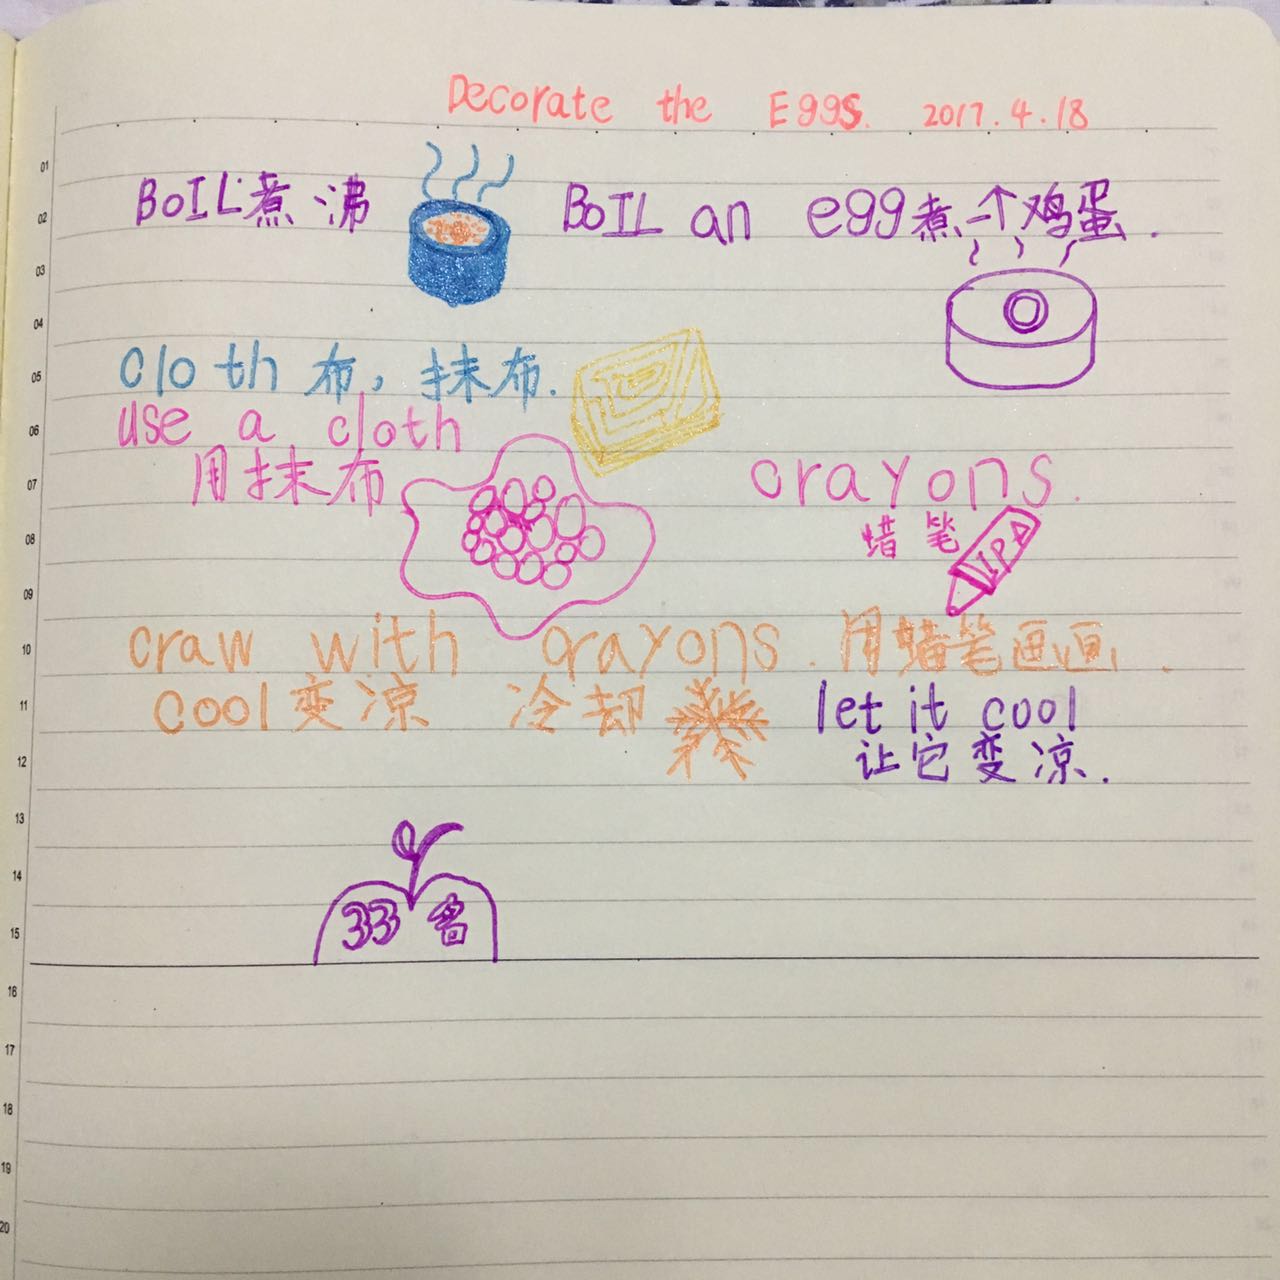 Decorate the Eggs. 2017.4.18
BoIL煮沸 BoIL an egg煮一个鸡蛋.
cloth 布，抹布.
use a cloth
用抹布
crayons.
蜡笔
craw with crayons. 用蜡笔画画.
cool变凉 冷却
let it cool
让它变凉.
01
02
03
04
05
06
07
08
09
10
11
12
13
14
15
16
17
18
19
20
33